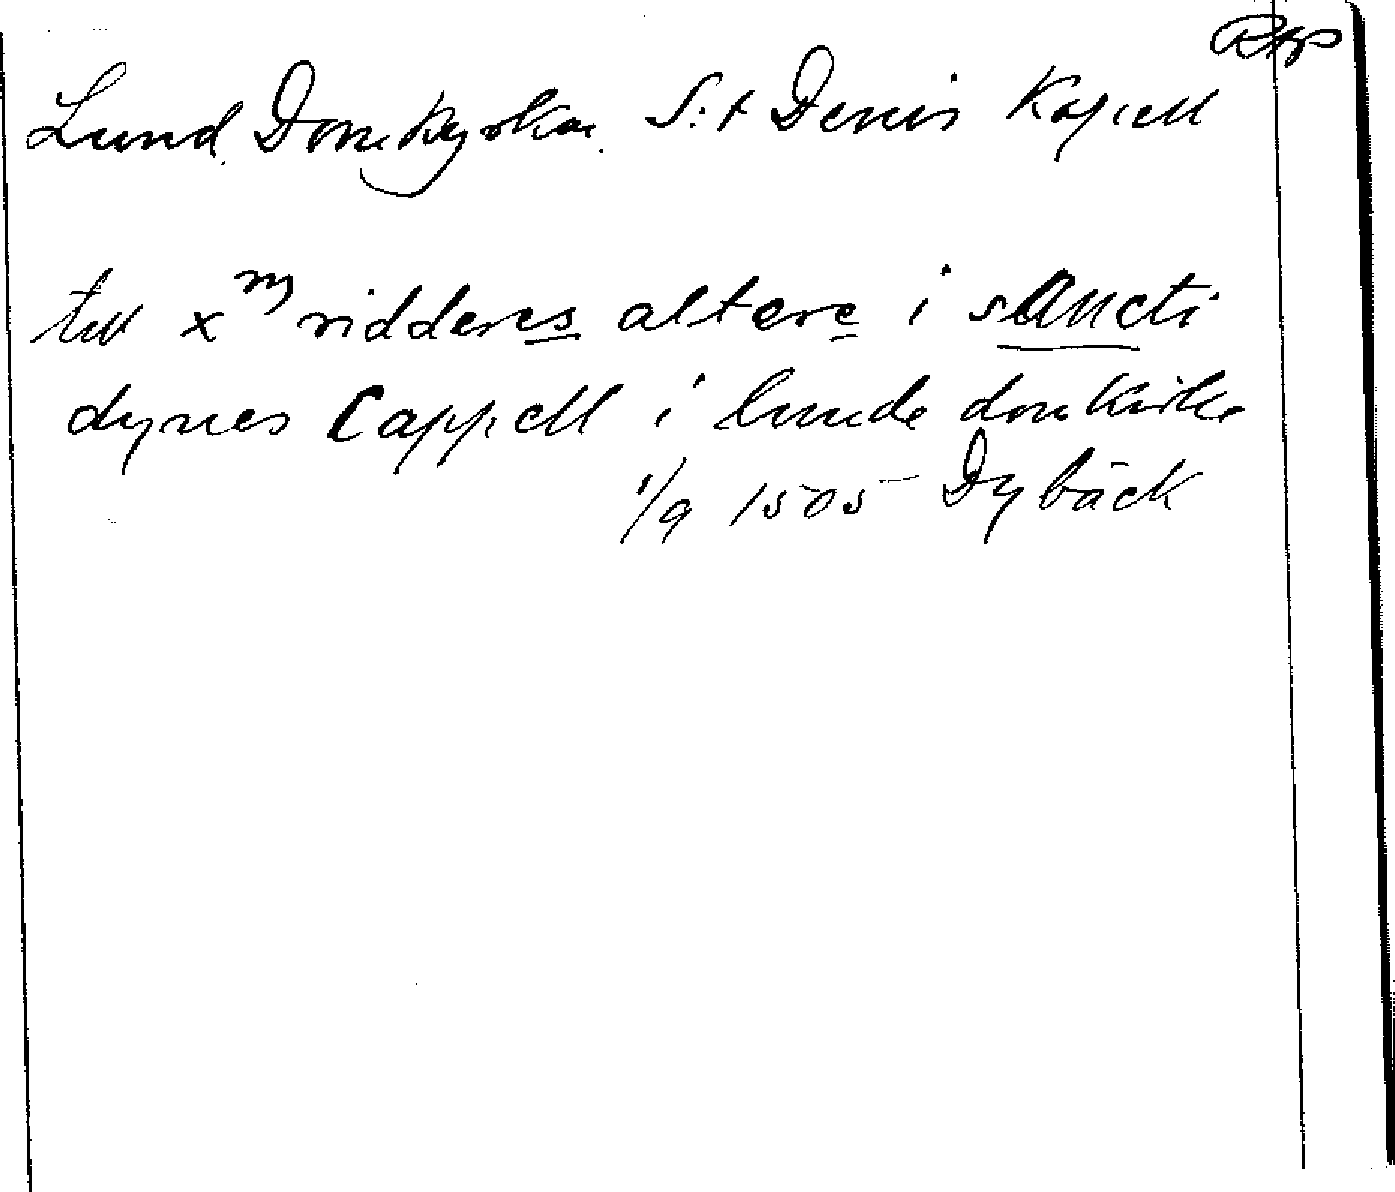 Rep
Lund. Domkyrkan. S:t Denis Kapell
till x^m ridderes altere i sancti
dynes Cappell i lunde domkirke
1/9 1505 Dybäck